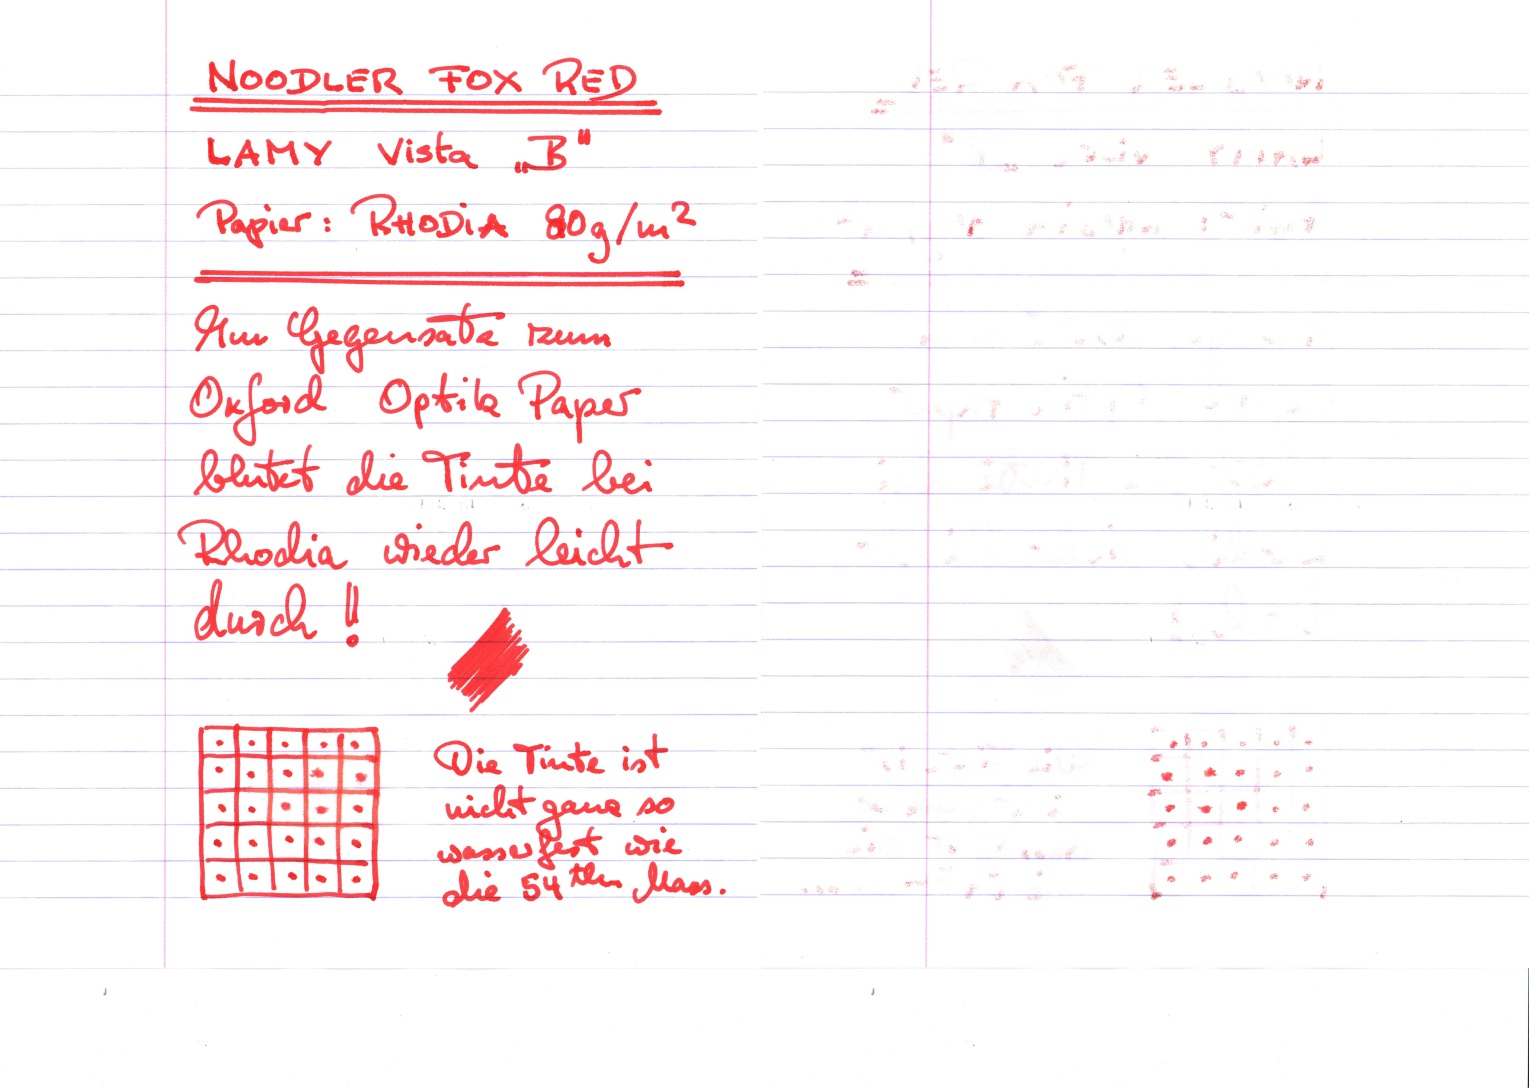 NOODLER FOX RED
LAMY Vista „B"
Papier: RHODiA 80g/m²
Im Gegensatz zum
Oxford Optik Paper
blutet die Tinte bei
Rhodia wieder leicht
durch!!
Die Tinte ist
nicht ganz so
wasserfest wie
die 54 thn Mass.